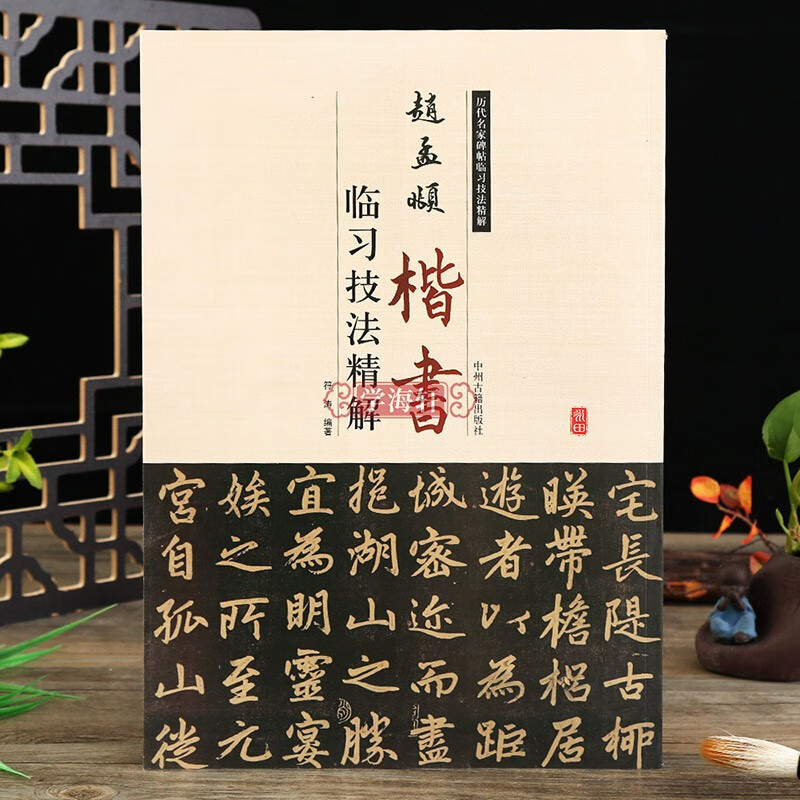 历代名家碑帖临习技法精解
趙孟頫
楷書
临习技法精解
中州古籍出版社
符涛 编著
学海轩
宅長隄古柳
暎帶檐梠居
遊者以為距
城密迩而盡
挹湖山之勝
宜為眀靈宴
娭之所至元
宮自孤山徙